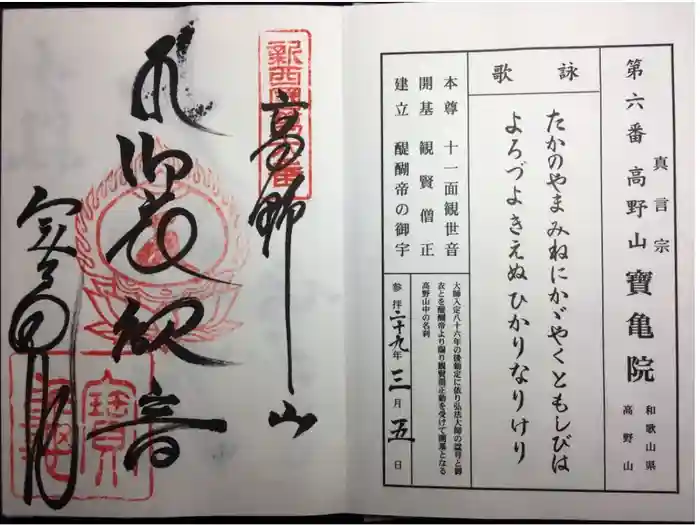 第六番 高野山 真言宗 寶亀院 和歌山県 高野山
詠歌
たかのやまみねにかゞやくともしびは
よろづよきえぬひかりなりけり
本尊 十一面観世音
開基 観賢僧正
建立 醍醐帝の御宇
大師入定八十六年の後勅定に依り弘法大師の諡号と御
衣とを醍醐帝より賜り観賢僧正勅を受けて開基となる
高野山中の名刹
参拝二十九年三月五日
高野山
観音
寶亀院